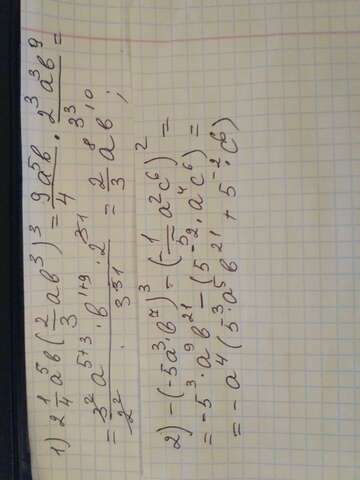 1) 2 1/4 a⁵b (2/3 ab³)³ = 9a⁵b/4 · 2³a³b⁹/3³ =
= 3²/2² a⁵⁺³ · b¹⁺⁹ · 2³¹/3³¹ = 2/3 a⁸b¹⁰;
2) -(-5a³·b⁷)³ - (-1/5 a²c⁶)² =
= -5³·a⁹b²¹ - (5⁻²·a⁴c⁶) =
= -a⁴(5³·a⁵b²¹ + 5⁻²·c⁶)